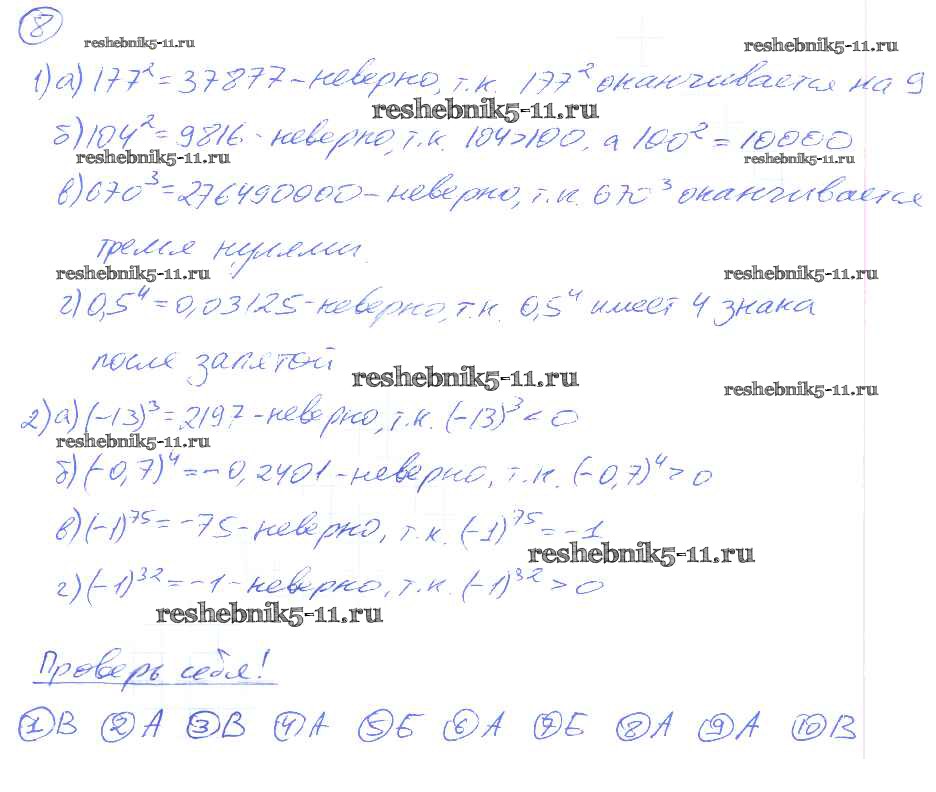 8
reshebnik5-11.ru reshebnik5-11.ru
1) а) 177² = 37877 - неверно, т.к. 177² оканчивается на 9
reshebnik5-11.ru
б) 104² = 9816 - неверно, т.к. 104 > 100, а 100² = 10000
reshebnik5-11.ru reshebnik5-11.ru
в) 670³ = 276490000 - неверно, т.к. 670³ оканчивается
тремя нулями.
reshebnik5-11.ru reshebnik5-11.ru
г) 0,5⁴ = 0,03125 - неверно, т.к. 0,5⁴ имеет 4 знака
после запятой
reshebnik5-11.ru reshebnik5-11.ru
2) а) (-13)³ = 2197 - неверно, т.к. (-13)³ < 0
reshebnik5-11.ru
б) (-0,7)⁴ = -0,2401 - неверно, т.к. (-0,7)⁴ > 0
в) (-1)⁷⁵ = -75 - неверно, т.к. (-1)⁷⁵ = -1
reshebnik5-11.ru
г) (-1)³² = -1 - неверно, т.к. (-1)³² > 0
reshebnik5-11.ru
Проверь себя!
1 В 2 А 3 В 4 А 5 Б 6 А 7 Б 8 А 9 А 10 В